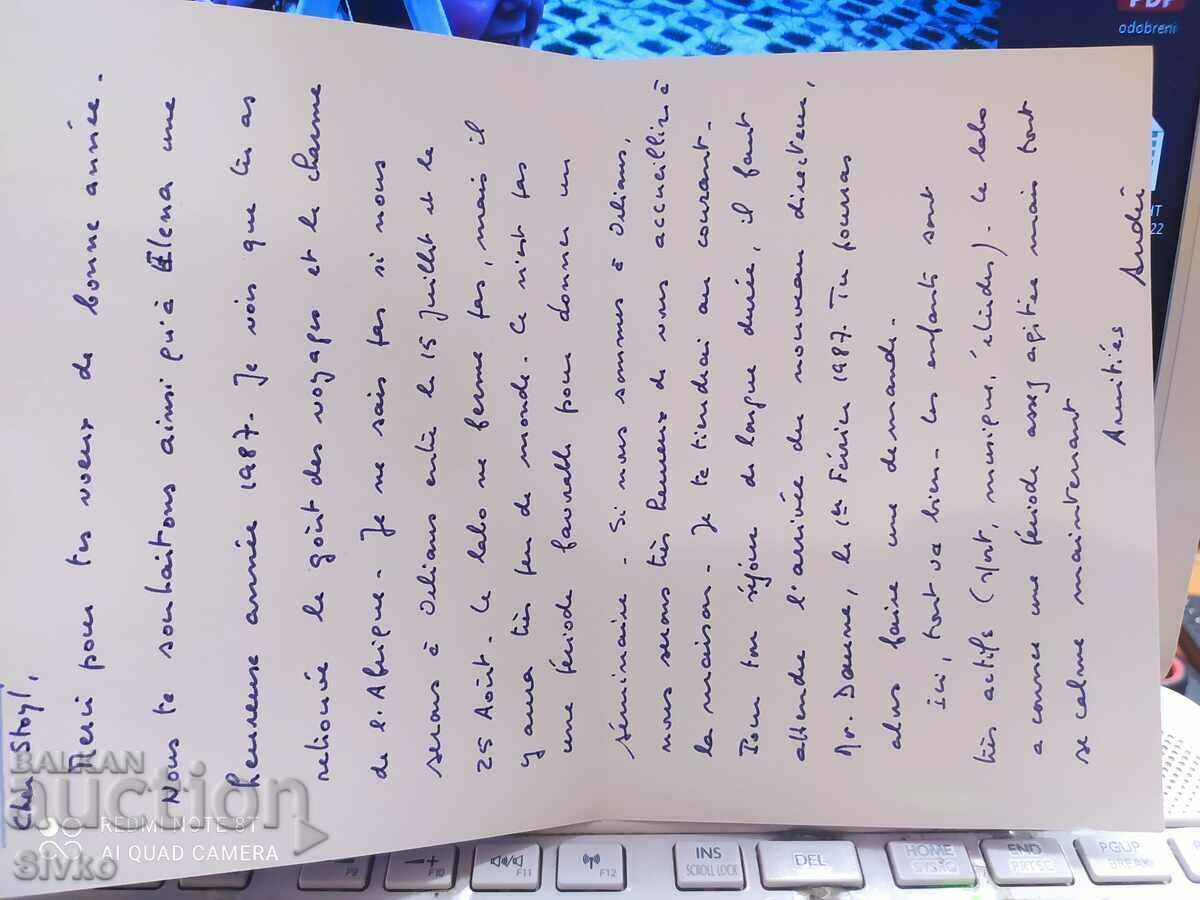 Cher Stoyl,
Merci pour tes voeux de bonne année.
Nous te souhaitons ainsi qu'à Elena une
heureuse année 1987. Je vois que tu as
retrouvé le goût des voyages et le charme
de l'Afrique. Je ne sais pas si nous
serons à Orléans entre le 15 juillet et le
25 Août. Le labo ne ferme pas, mais il
y aura très peu de monde. Ce n'est pas
une période favorable pour donner un
séminaire. Si nous sommes à Orléans,
nous serons très heureux de vous accueillir à
la maison. Je te tiendrai au courant.
Pour ton séjour de longue durée, il faut
attendre l'arrivée du nouveau directeur,
Mr. le 1er Février 1987. Tu pourras
alors faire une demande.
Ici, tout va bien. Les enfants sont
très actifs (sport, musique, études). Le labo
a connu une période assez agitée mais tout
se calme maintenant
Amitiés André
PDF
odobreni
НТ
22
BALKAN
auction
REDMI NOTE 8T
AI QUAD CAMERA
Sivko
F9
F10
F11
F12
INS
SCROLL LOCK
DEL
HOME
SYSRQ
END
PRTSC
PGUP
BREAK